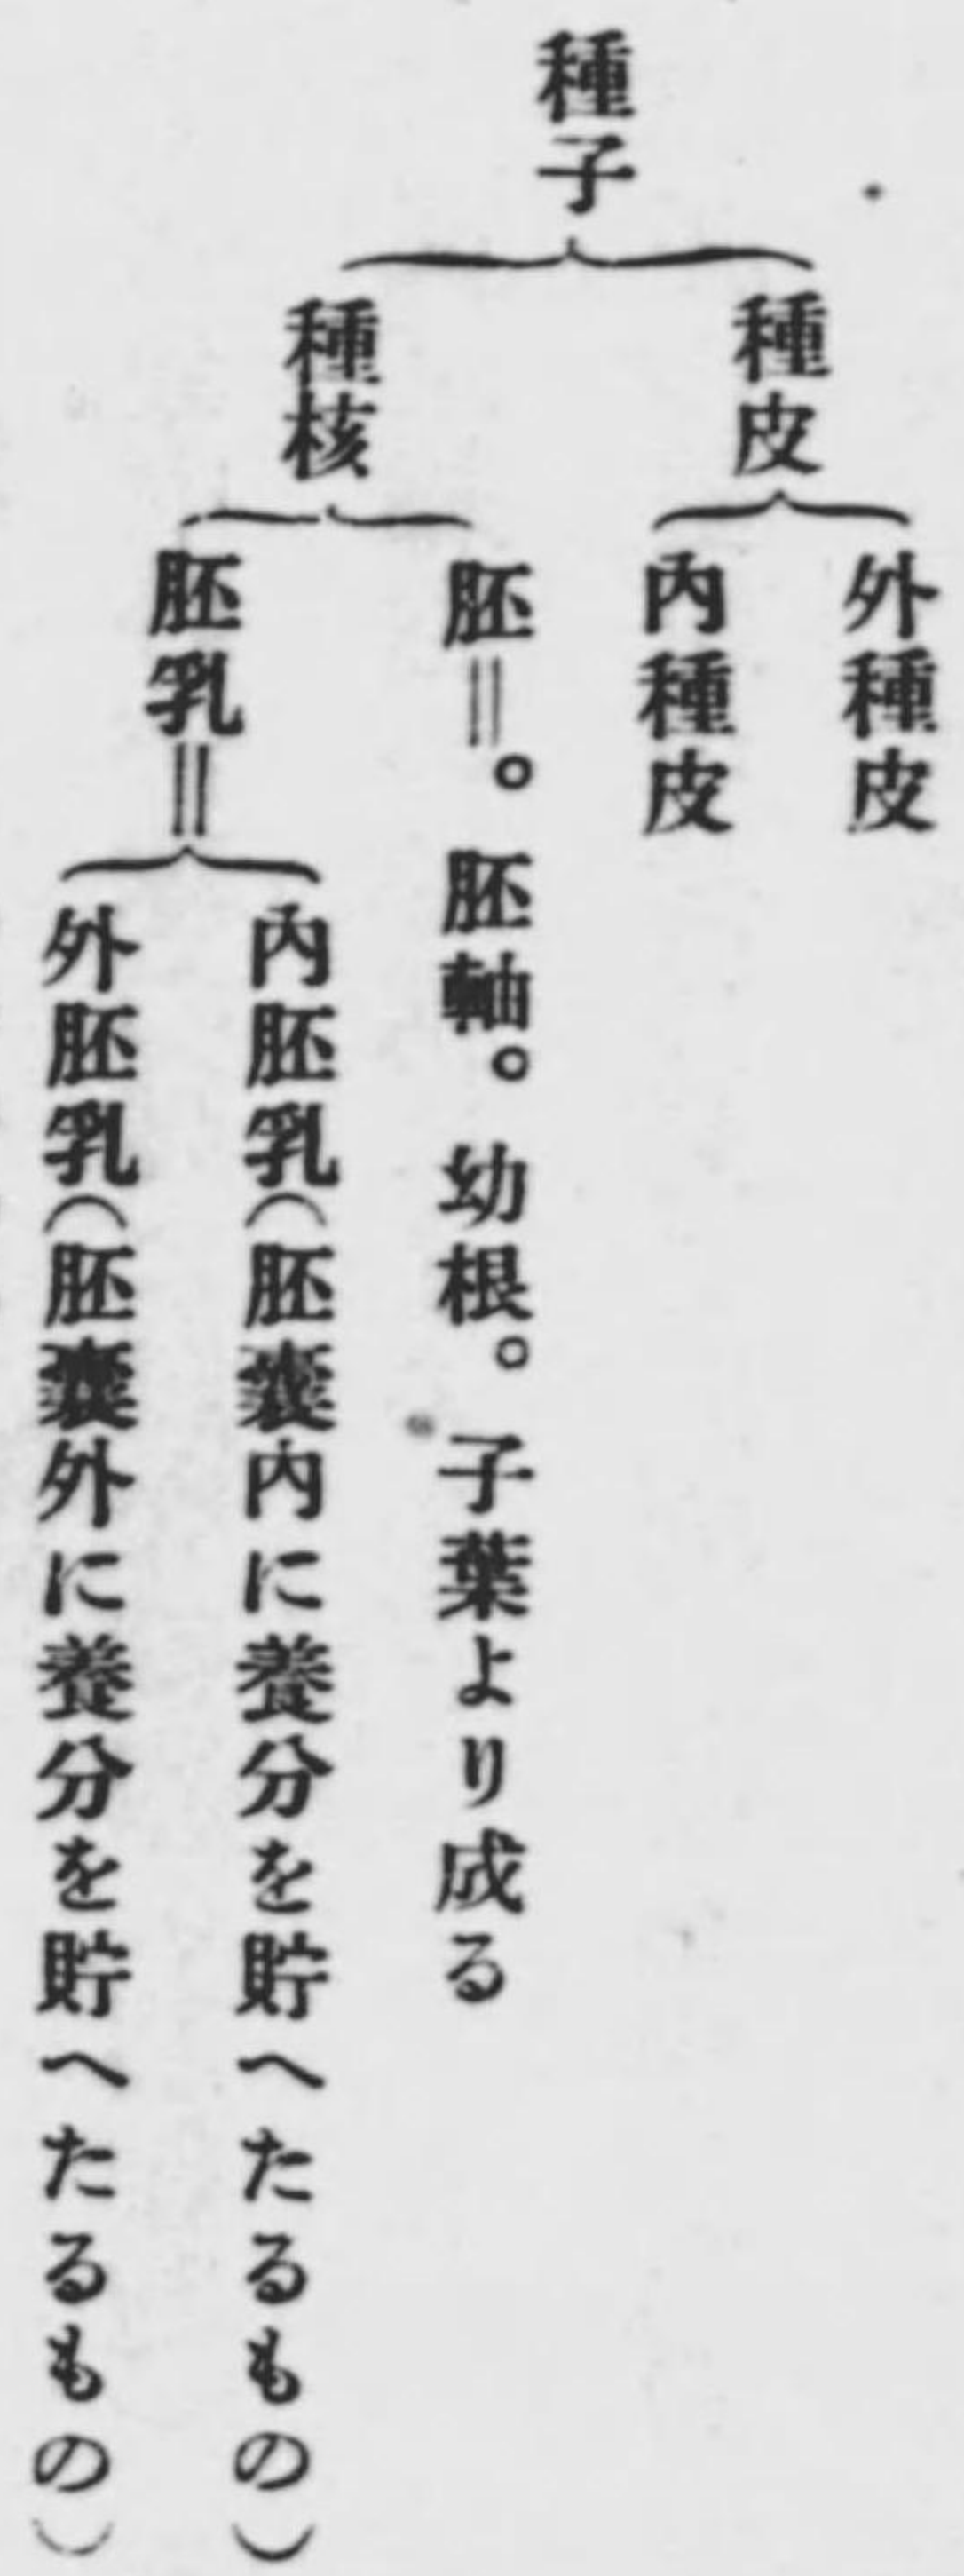 種子
種皮
外種皮
內種皮
種核
胚＝。胚軸。幼根。子葉より成る
胚乳＝
內胚乳（胚囊內に養分を貯へたるもの）
外胚乳（胚囊外に養分を貯へたるもの）